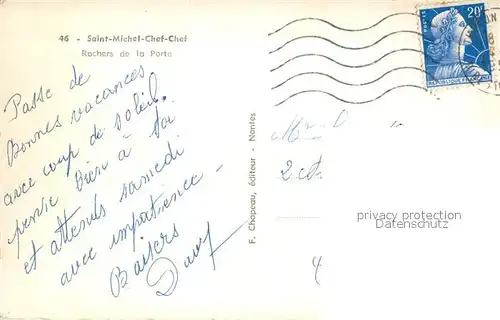 46 - Saint-Michel-Chef-Chef
Rochers de la Porte
Passe de
Bonnes vacances
avec coup de soleil.
pense bien à toi
et attends samedi
avec impatience -
Baisers
F. Chapeau, éditeur - Nantes
20F
privacy protection
Datenschutz